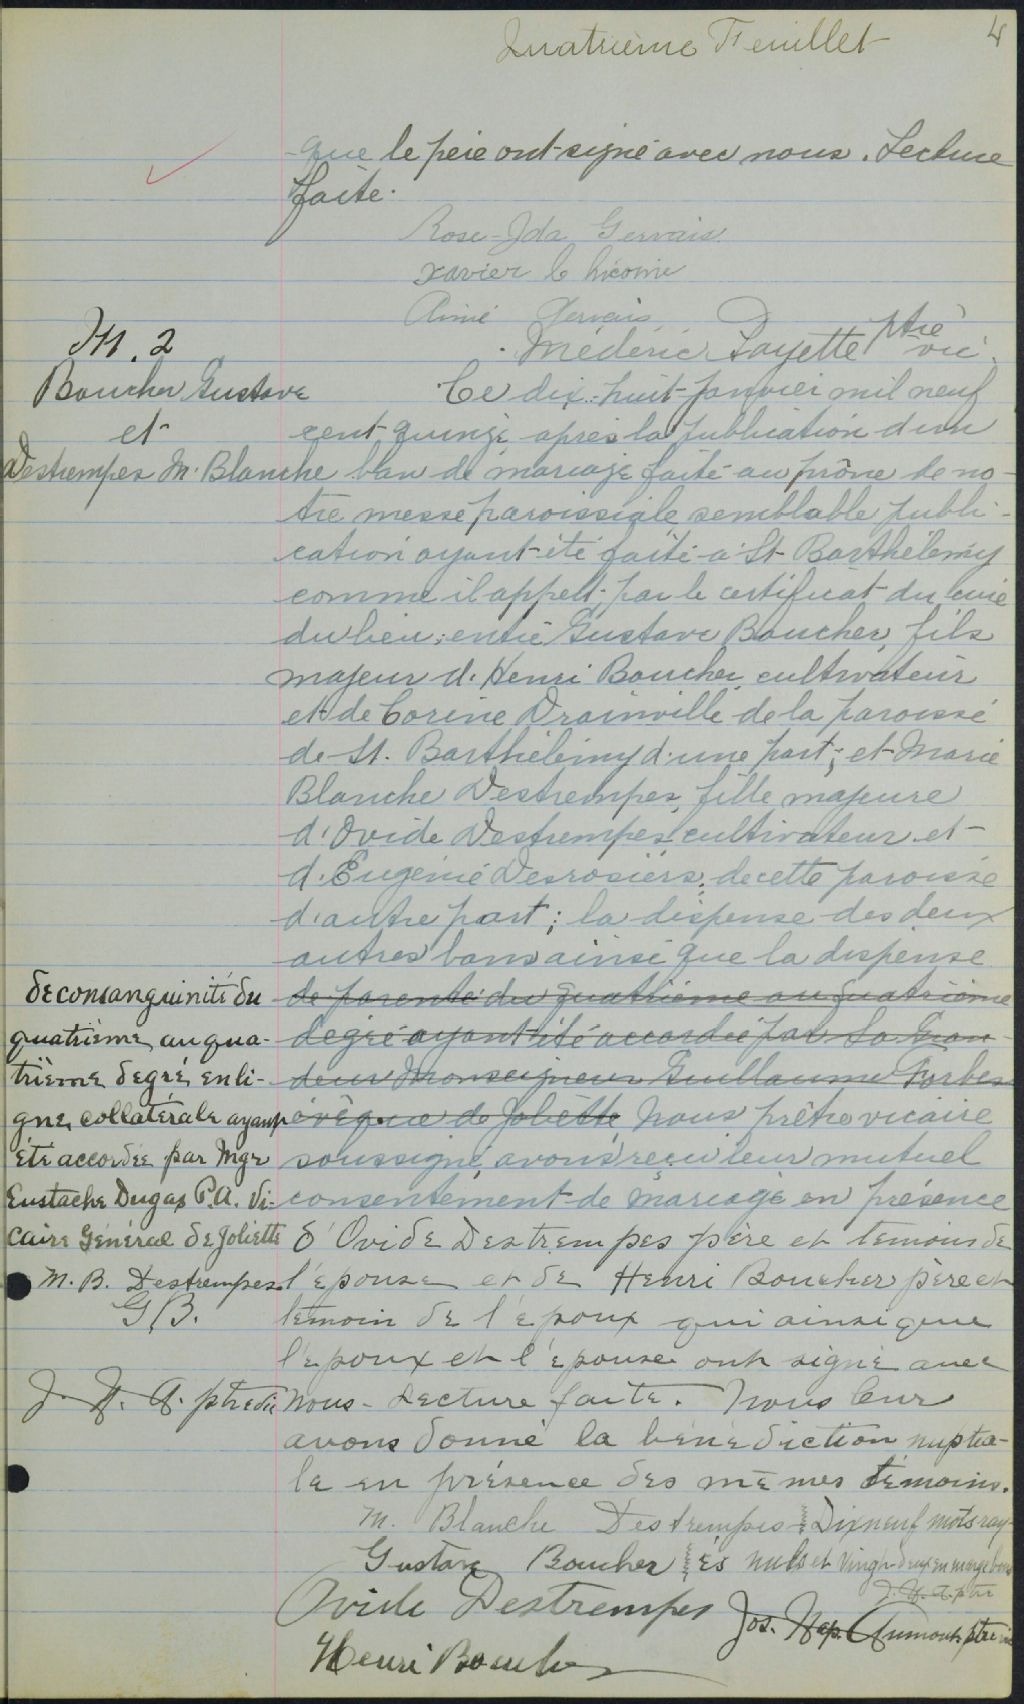 Quatrième Feuillet
4
que le père ont signé avec nous. Lecture
faite.
Rose-Ida Gervais
Xavier
Aimé Gervais
Médéric Payette ptre
vic.
M. 2
Boucher Gustave
et
Destrempes M. Blanche
Ce dix-huit janvier mil neuf
cent quinze après la publication d'un
ban de mariage faite au prône de no-
tre messe paroissiale semblable publi-
cation ayant été faite à St Barthélémy
comme il appert par le certificat du curé
du lieu; entre Gustave Boucher, fils
majeur d'Henri Boucher cultivateur
et de Corine Drainville de la paroisse
de St. Barthélémy d'une part; et Marie
Blanche Destrempes, fille majeure
d'Ovide Destrempes, cultivateur et
d'Eugénie Desrosiers, de cette paroisse
d'autre part; la dispense des deux
autres bans ainsi que la dispense
de parenté du quatrième au quatrième
degré ayant été accordée par Sa Gran-
deur Monseigneur Guillaume Forbes
évêque de Joliette Nous prêtre vicaire
soussigné, avons reçu leur mutuel
consentement de mariage en présence
d'Ovide Destrempes père et temoin de
l'épouse et de Henri Boucher père et
temoin de l'époux qui ainsi que
l'époux et l'épouse ont signé avec
nous. Lecture faite. Nous leur
avons donné la bénédiction nuptia-
le en présence des mêmes témoins.
de consanguinité du
quatrième au qua-
trième degré, en li-
gne collatérale ayant
été accordée par Mgr
Eustache Dugas P.A. Vi-
caire Général de Joliette
M. B. Destrempes
G.B.
J. N. A. ptre vic
M. Blanche Destrempes
Dix neuf mots ray-
Gustave Boucher
és nuls et vingt-deux en marge bons
J. N. A. ptre
Ovide Destrempes
Jos. Nap. Aumont ptre vic
Henri Boucher